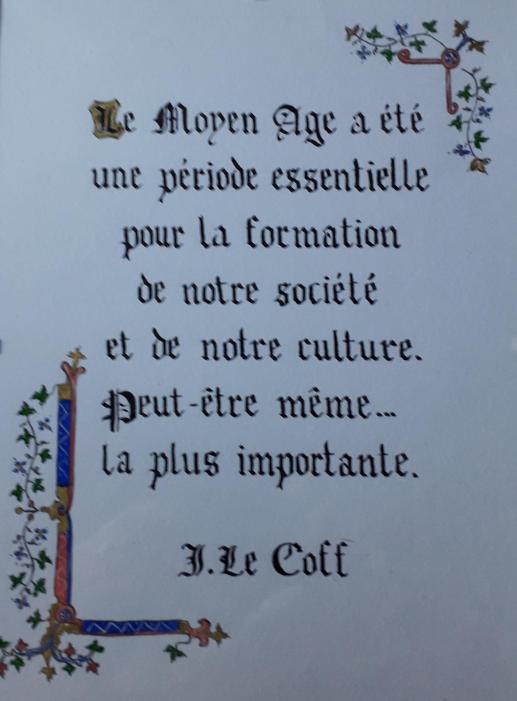 Le Moyen Age a été
une période essentielle
pour la formation
de notre société
et de notre culture.
Peut-être même...
la plus importante.
J. Le Coff